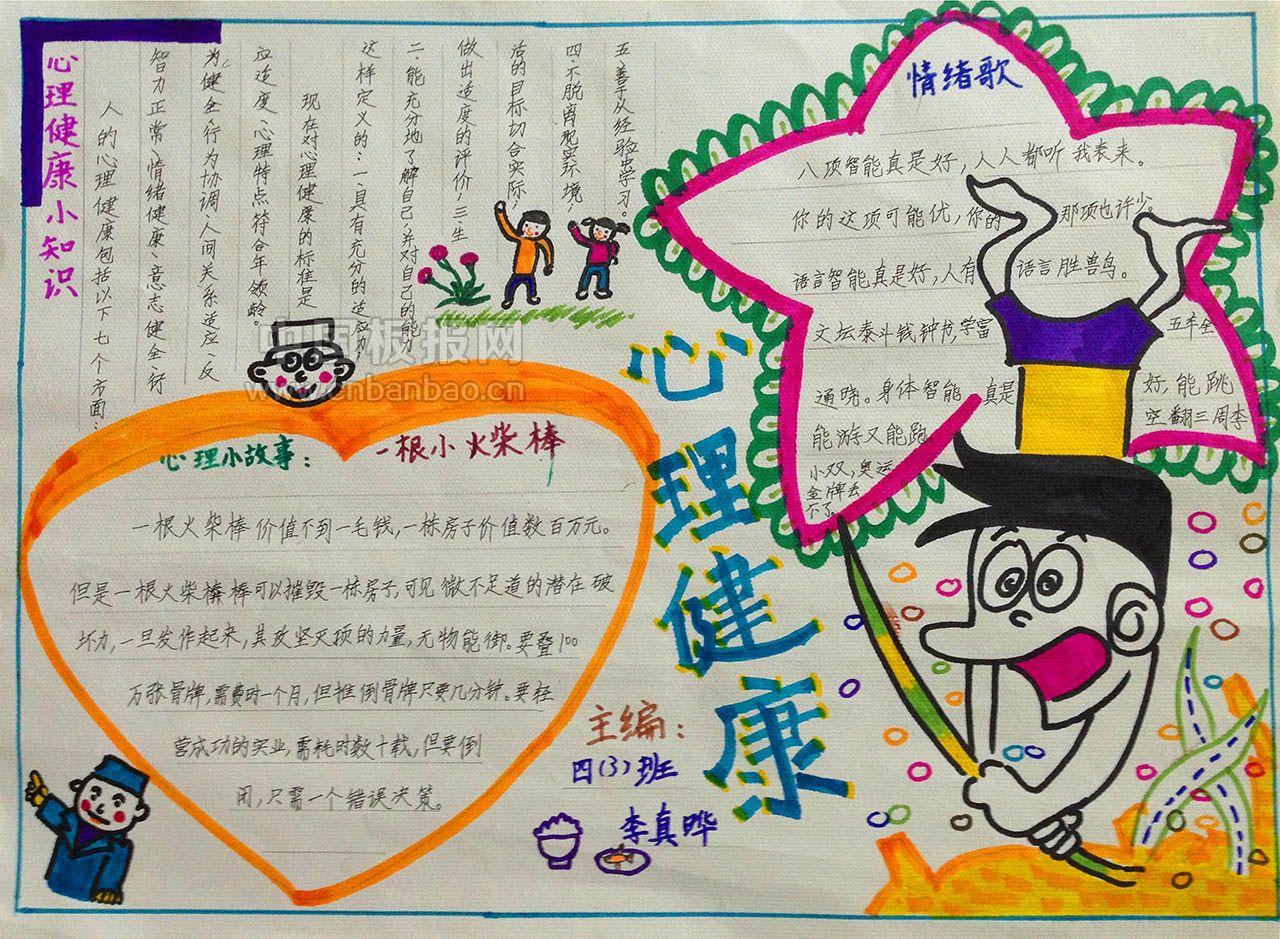 心理健康小知识
人的心理健康包括以下七个方面:
智力正常、情绪健康、意志健全、行
为健全、行为协调、人间关系适应、反
应适度、心理特点符合年领龄。
现在对心理健康的标准是
这样定义的:一、具有充分的适应力;
二、能充分地了解自己,并对自己的能力
做出适度的评价;三、生
活的目标切合实际;
四、不脱离现实环境;
五、善于从经验中学习。
情绪歌
八项智能真是好,人人都听我表来。
你的这项可能优,你的那项也许少。
语言智能真是好,人有语言胜兽鸟。
文坛泰斗钱钟书,学富五车全
通晓。身体智能真是好,能跳
能游又能跑。空翻三周李
小双,奥运
金牌丢
不了。
心理健康
心理小故事:一根小火柴棒
一根火柴棒价值不到一毛钱,一栋房子价值数百万元。
但是一根火柴棒棒可以摧毁一栋房子,可见微不足道的潜在破
坏力,一旦发作起来,其攻坚灭顶的力量,无物能御。要叠100
万张骨牌,需费时一个月,但推倒骨牌只要几分钟。要经
营成功的实业,需耗时数十载,但要倒
闭,只需一个错误决策。
主编:
四(3)班
李真晔
中国板报网
www.cnbanbao.cn